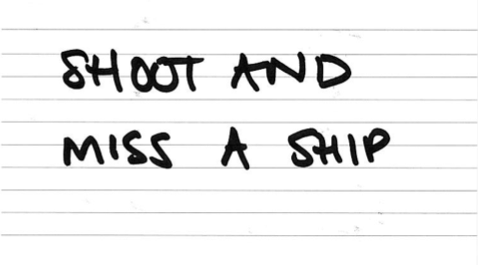 SHOOT AND
MISS A SHIP